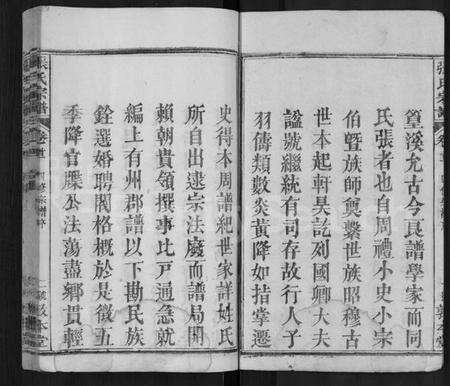 張氏宗譜 卷首
篁溪尤古今良譜學家而同
氏張者也自周禮小史小宗
伯暨族師奠繫世族昭穆古
世本起軒昊訖列國卿大夫
諡號繼統有司存故行人子
羽儔類數炎黃降如指掌遷
史得本周譜紀世家詳姓氏
所自出逮宗法廢而譜局開
賴朝貴領撰事比戸通急就
編上有州郡譜以下勘民族
銓選婚聘閥格概於是徵五
季降官牒公法蕩盡鄉貫輕
張氏宗譜 卷首
敦本堂